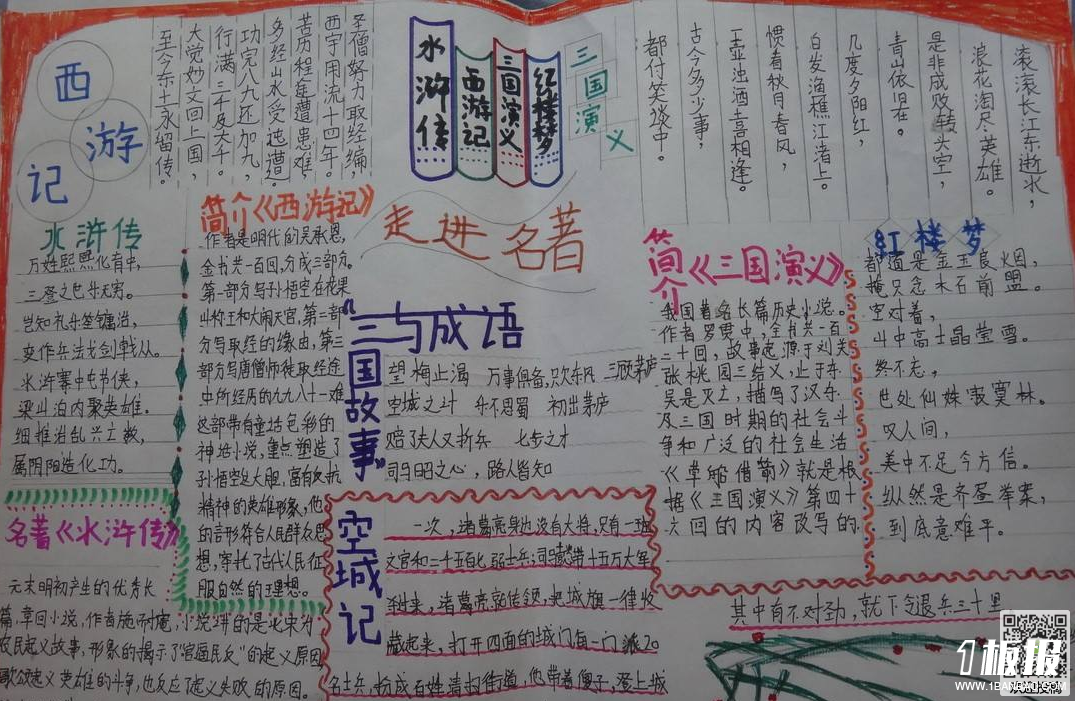 西游记
圣僧努力取经编，
西宇周流十四年。
苦历程途遭患难，
多经山水受迍邅。
功完八九还加九，
行满三千及大千。
大觉妙文回上国，
至今东土永留传。
水浒传
西游记
三国演义
红楼梦
三国演义
滚滚长江东逝水，
浪花淘尽英雄。
是非成败转头空，
青山依旧在。
几度夕阳红，
白发渔樵江渚上。
惯看秋月春风，
一壶浊酒喜相逢。
古今多少事，
都付笑谈中。
走进名著
水浒传
万姓熙熙化育中，
三登之世乐无穷。
岂知礼乐笙镛治，
变作兵戈剑戟丛。
水浒寨中屯节侠，
梁山泊内聚英雄。
细推治乱兴亡数，
属阴阳造化功。
名著《水浒传》
元末明初产生的优秀长
篇，章回小说，作者施耐庵，小说讲的是北宋为
农民起义故事，形象的揭示了“官逼民反”的起义原因
歌颂起义英雄的斗争，也反应了起义失败的原因。
简介《西游记》
作者是明代的吴承恩，
全书共一百回，分成三部分。
第一部分写孙悟空在花果
山称王和大闹天宫，第二部
分写取经的缘由，第三
部分写唐僧师徒取经途
中所经历的九九八十一难
这部带有童话色彩的
神话小说，重点塑造了
孙悟空这大胆，富有反抗
精神的英雄形象，他
的言形符合人民群众思
想，寄托了古代人民征
服自然的理想。
“三国故事”与成语
望梅止渴 万事俱备，只欠东风 三顾茅庐
空城之计 乐不思蜀 初出茅庐
赔了夫人又折兵 七步之才
司马昭之心，路人皆知
空城记
一次，诸葛亮身边没有大将，只有一班
文官和二千五百名弱士兵；司马懿带十五万大军
到来，诸葛亮就传领，把城旗一律收
藏起来，打开四面的城门每一门派20
名士兵，扮成百姓清扫街道，他带着傻子，登上城
简介《三国演义》
我国著名长篇历史小说。
作者罗贯中，全书共一百
二十回，故事起源于刘关
张桃园三结义，止于东
吴是灭亡，描写了汉末
及三国时期的社会斗
争和广泛的社会生活
《草船借箭》就是根
据《三国演义》第四十
六回的内容改写的
红楼梦
都道是金玉良姻，
俺只念木石前盟。
空对着，
山中高士晶莹雪。
终不忘，
世外仙姝寂寞林。
叹人间，
美中不足今方信。
纵然是齐眉举案，
到底意难平。
其中有不对劲，就下令退兵三十里
1板报
WWW.1BANBAO.COM